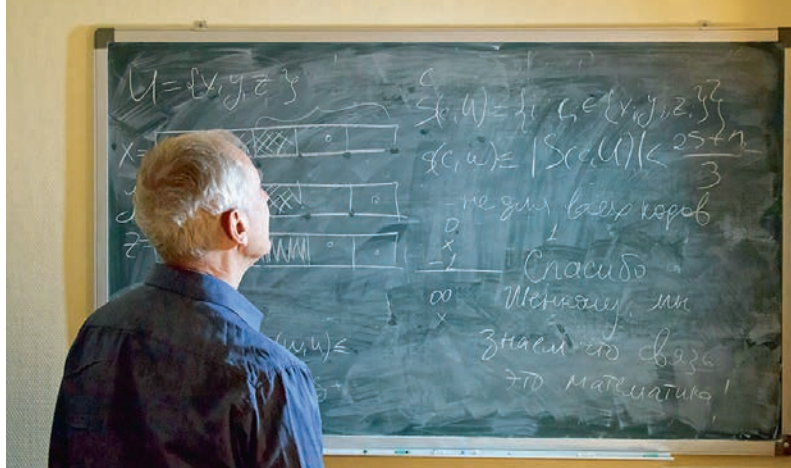 U={x,y,z}
x=
z=
C
S(c,U)={i: cᵢ∈{xᵢ,yᵢ,zᵢ}}
s(c,u)= |S(c,U)|≤ 2s+n/3
- не для всех кодов
0
x
-1
1
∞
x
Спасибо
Шеннону, мы
знаем что связь
это математика!
(u,u)≤